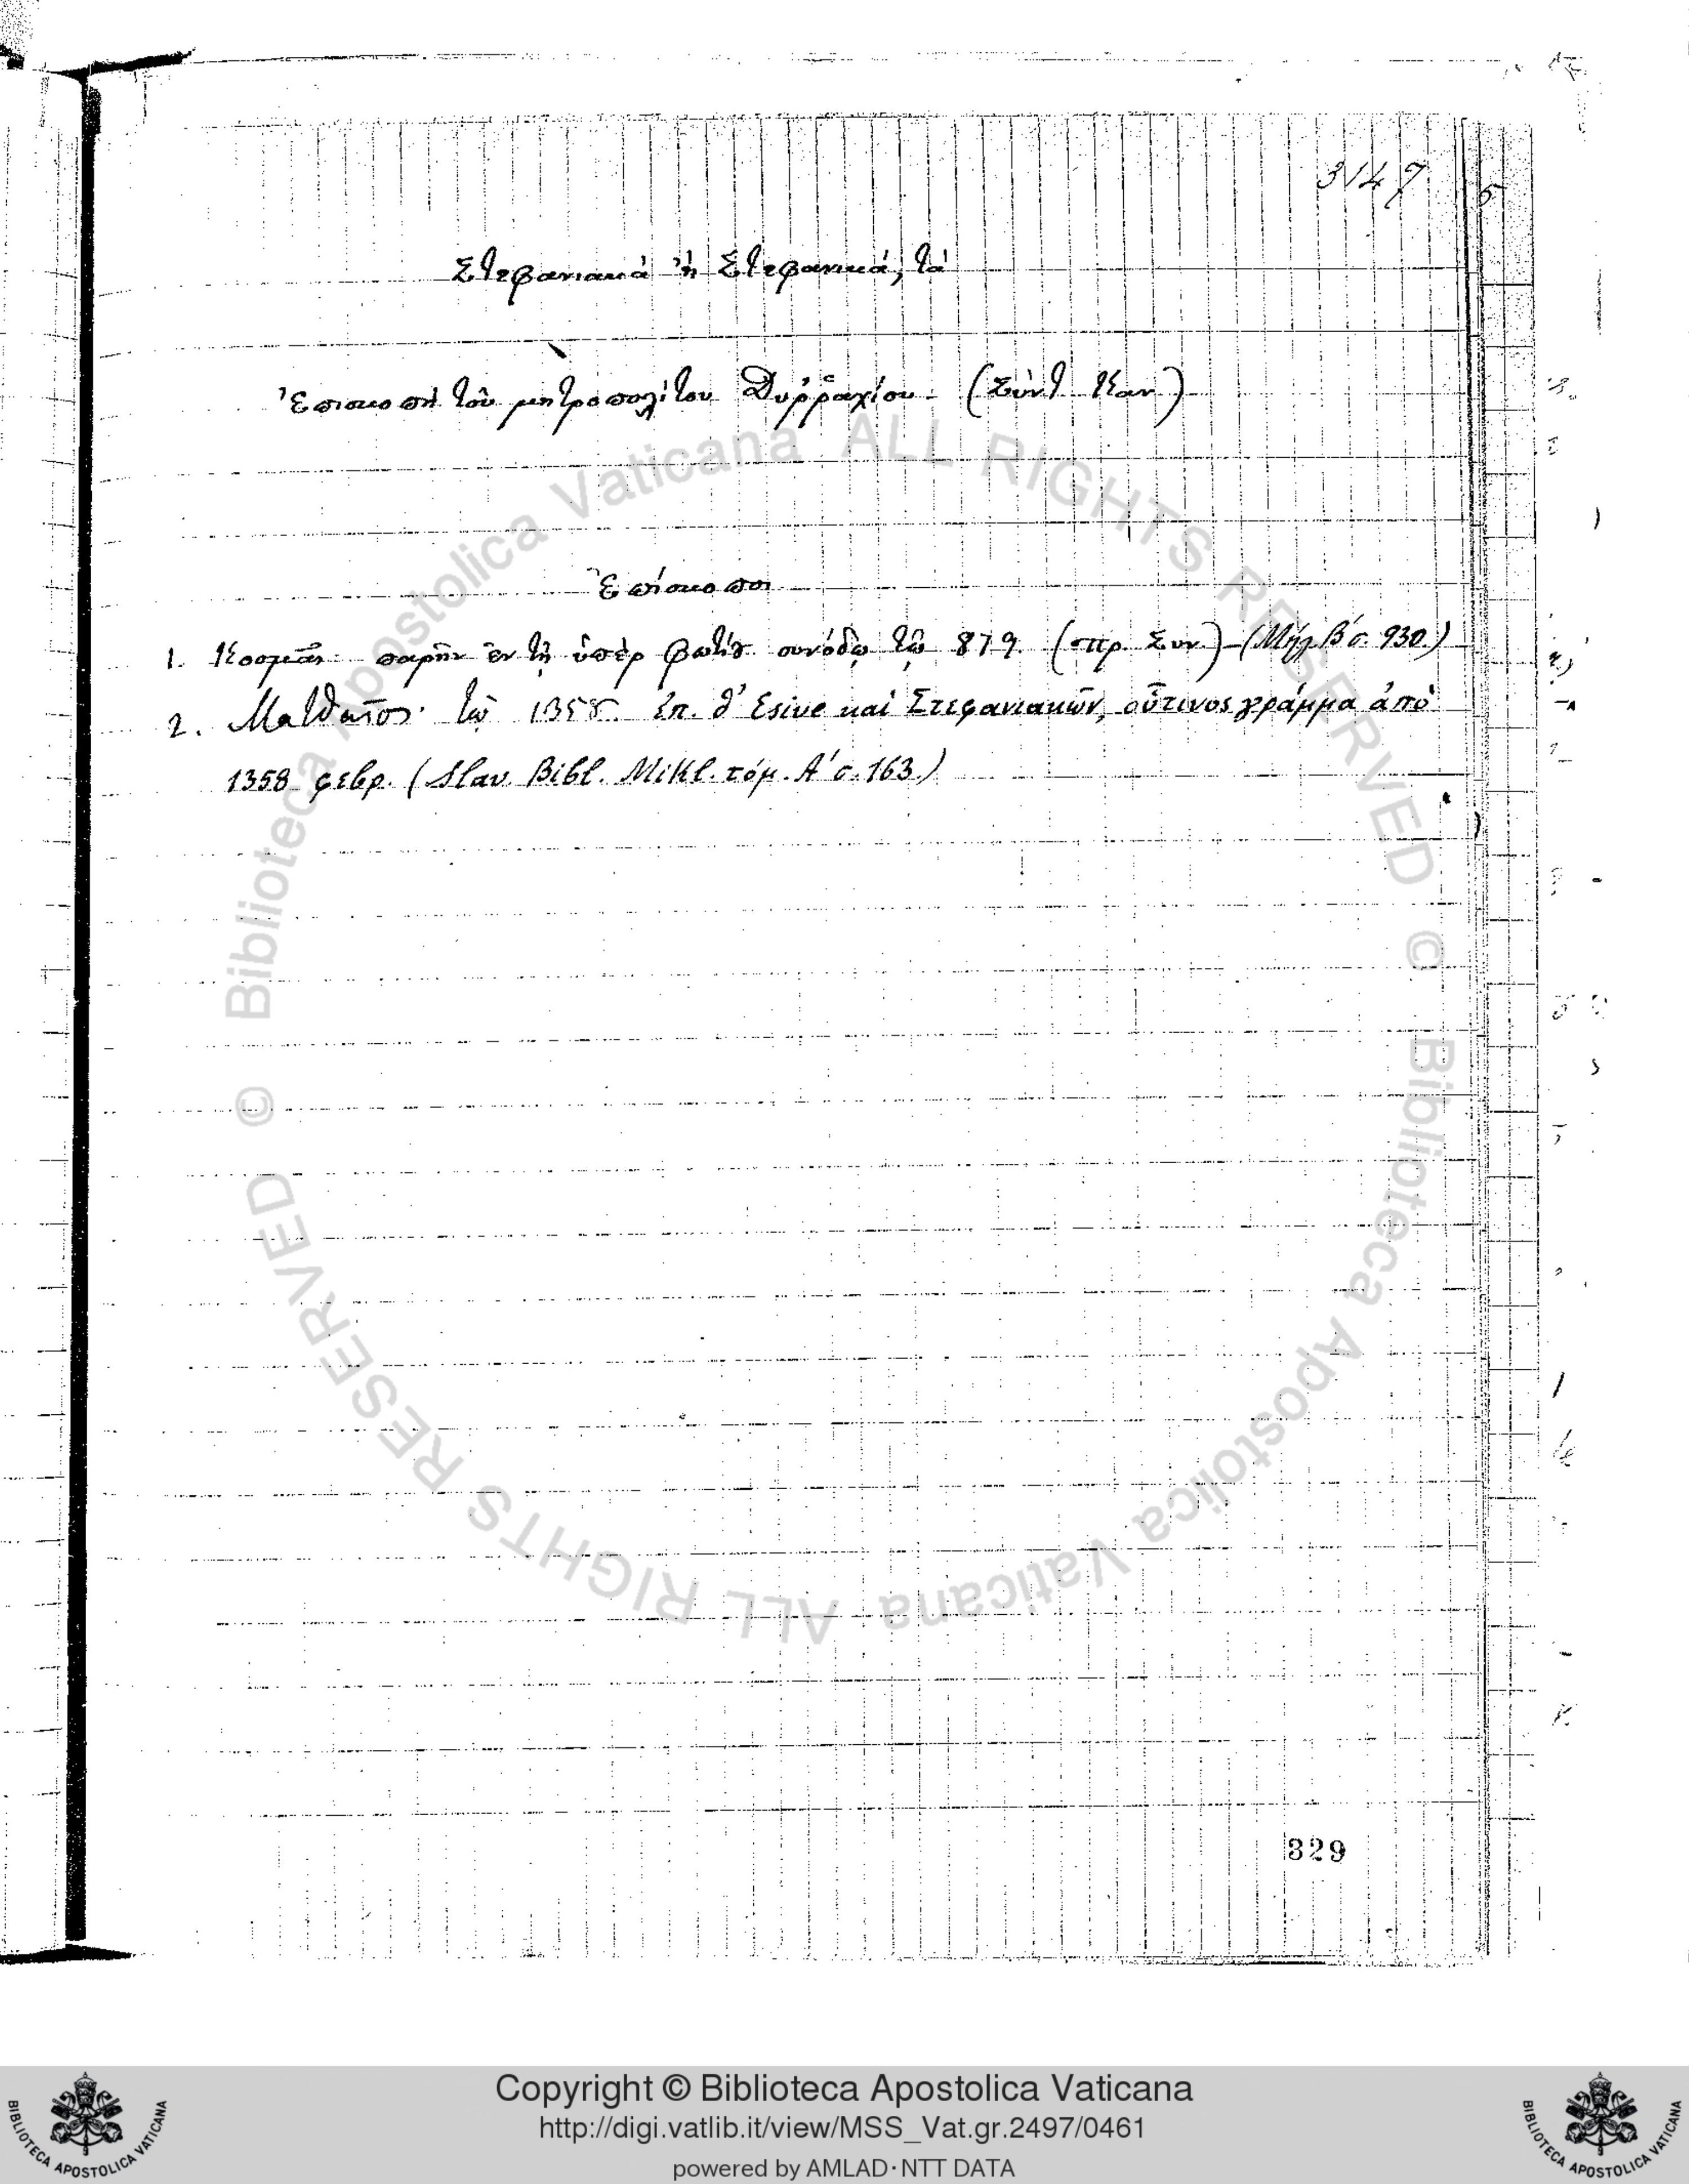 3147
Στεφανιακά ἢ Στεφανικά, τά
Ἐπισκοπὴ τοῦ μητροπολίτου Δυῤῥαχίου (Σύντ Καν)
Ἐπίσκοποι
1. Κοσμᾶς· παρῆν ἐν τῇ ὑπὲρ Φωτίου συνόδῳ τῷ 879 (πρ. Συν) (Μήλ. Β΄ σ. 930.)
2. Ματθαῖος· τῷ 1358. ἐπ. d' Esive καὶ Στεφανιακῶν, οὗτινος γράμμα ἀπὸ
1358 φεβρ. (Slav. Bibl. Mikl. τόμ. Α΄ σ. 163.)
329
© Biblioteca Apostolica Vaticana ALL RIGHTS RESERVED © Biblioteca Apostolica Vaticana ALL RIGHTS RESERVED
Copyright © Biblioteca Apostolica Vaticana
http://digi.vatlib.it/view/MSS_Vat.gr.2497/0461
powered by AMLAD·NTT DATA
BIBLIOTECA APOSTOLICA VATICANA
BIBLIOTECA APOSTOLICA VATICANA